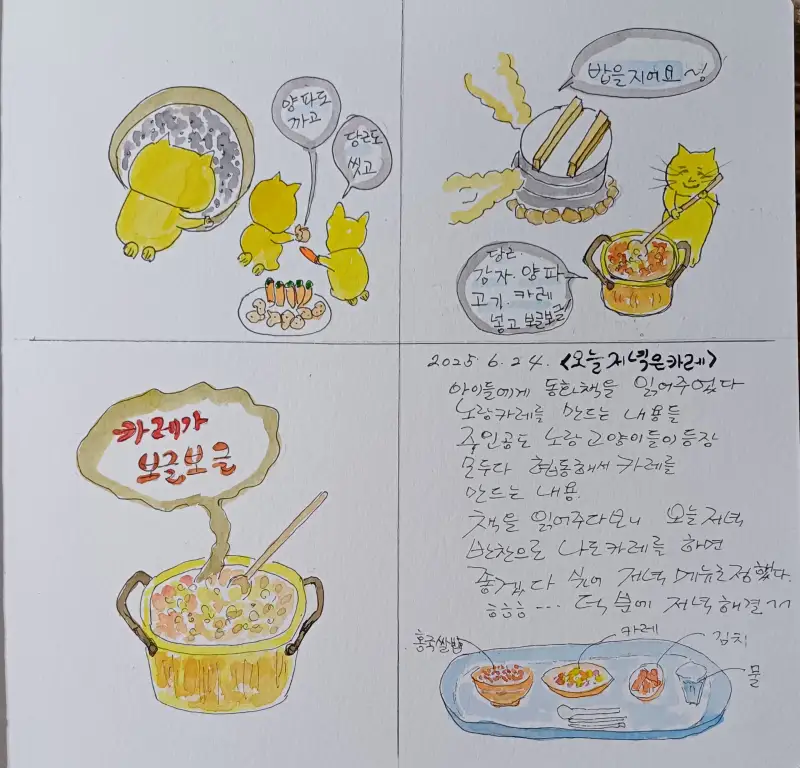 양파도
까고
당근도
씻고
밥을지어요~
당근.
감자. 양파
고기. 카레
넣고 보글보글
카레가
보글보글
2025. 6. 24. <오늘저녁은카레>
아이들에게 동화책을 읽어주었다
노랑카레를 만드는 내용들
주인공도 노랑고양이들이등장
모두다 협동해서 카레를
만드는 내용.
책을 읽어주다보니 오늘저녁
반찬으로 나도카레를 하면
좋겠다 싶어 저녁메뉴로정했다.
ㅎㅎㅎ... 덕분에 저녁해결ㄱㄱ
홍국쌀밥
카레
김치
물